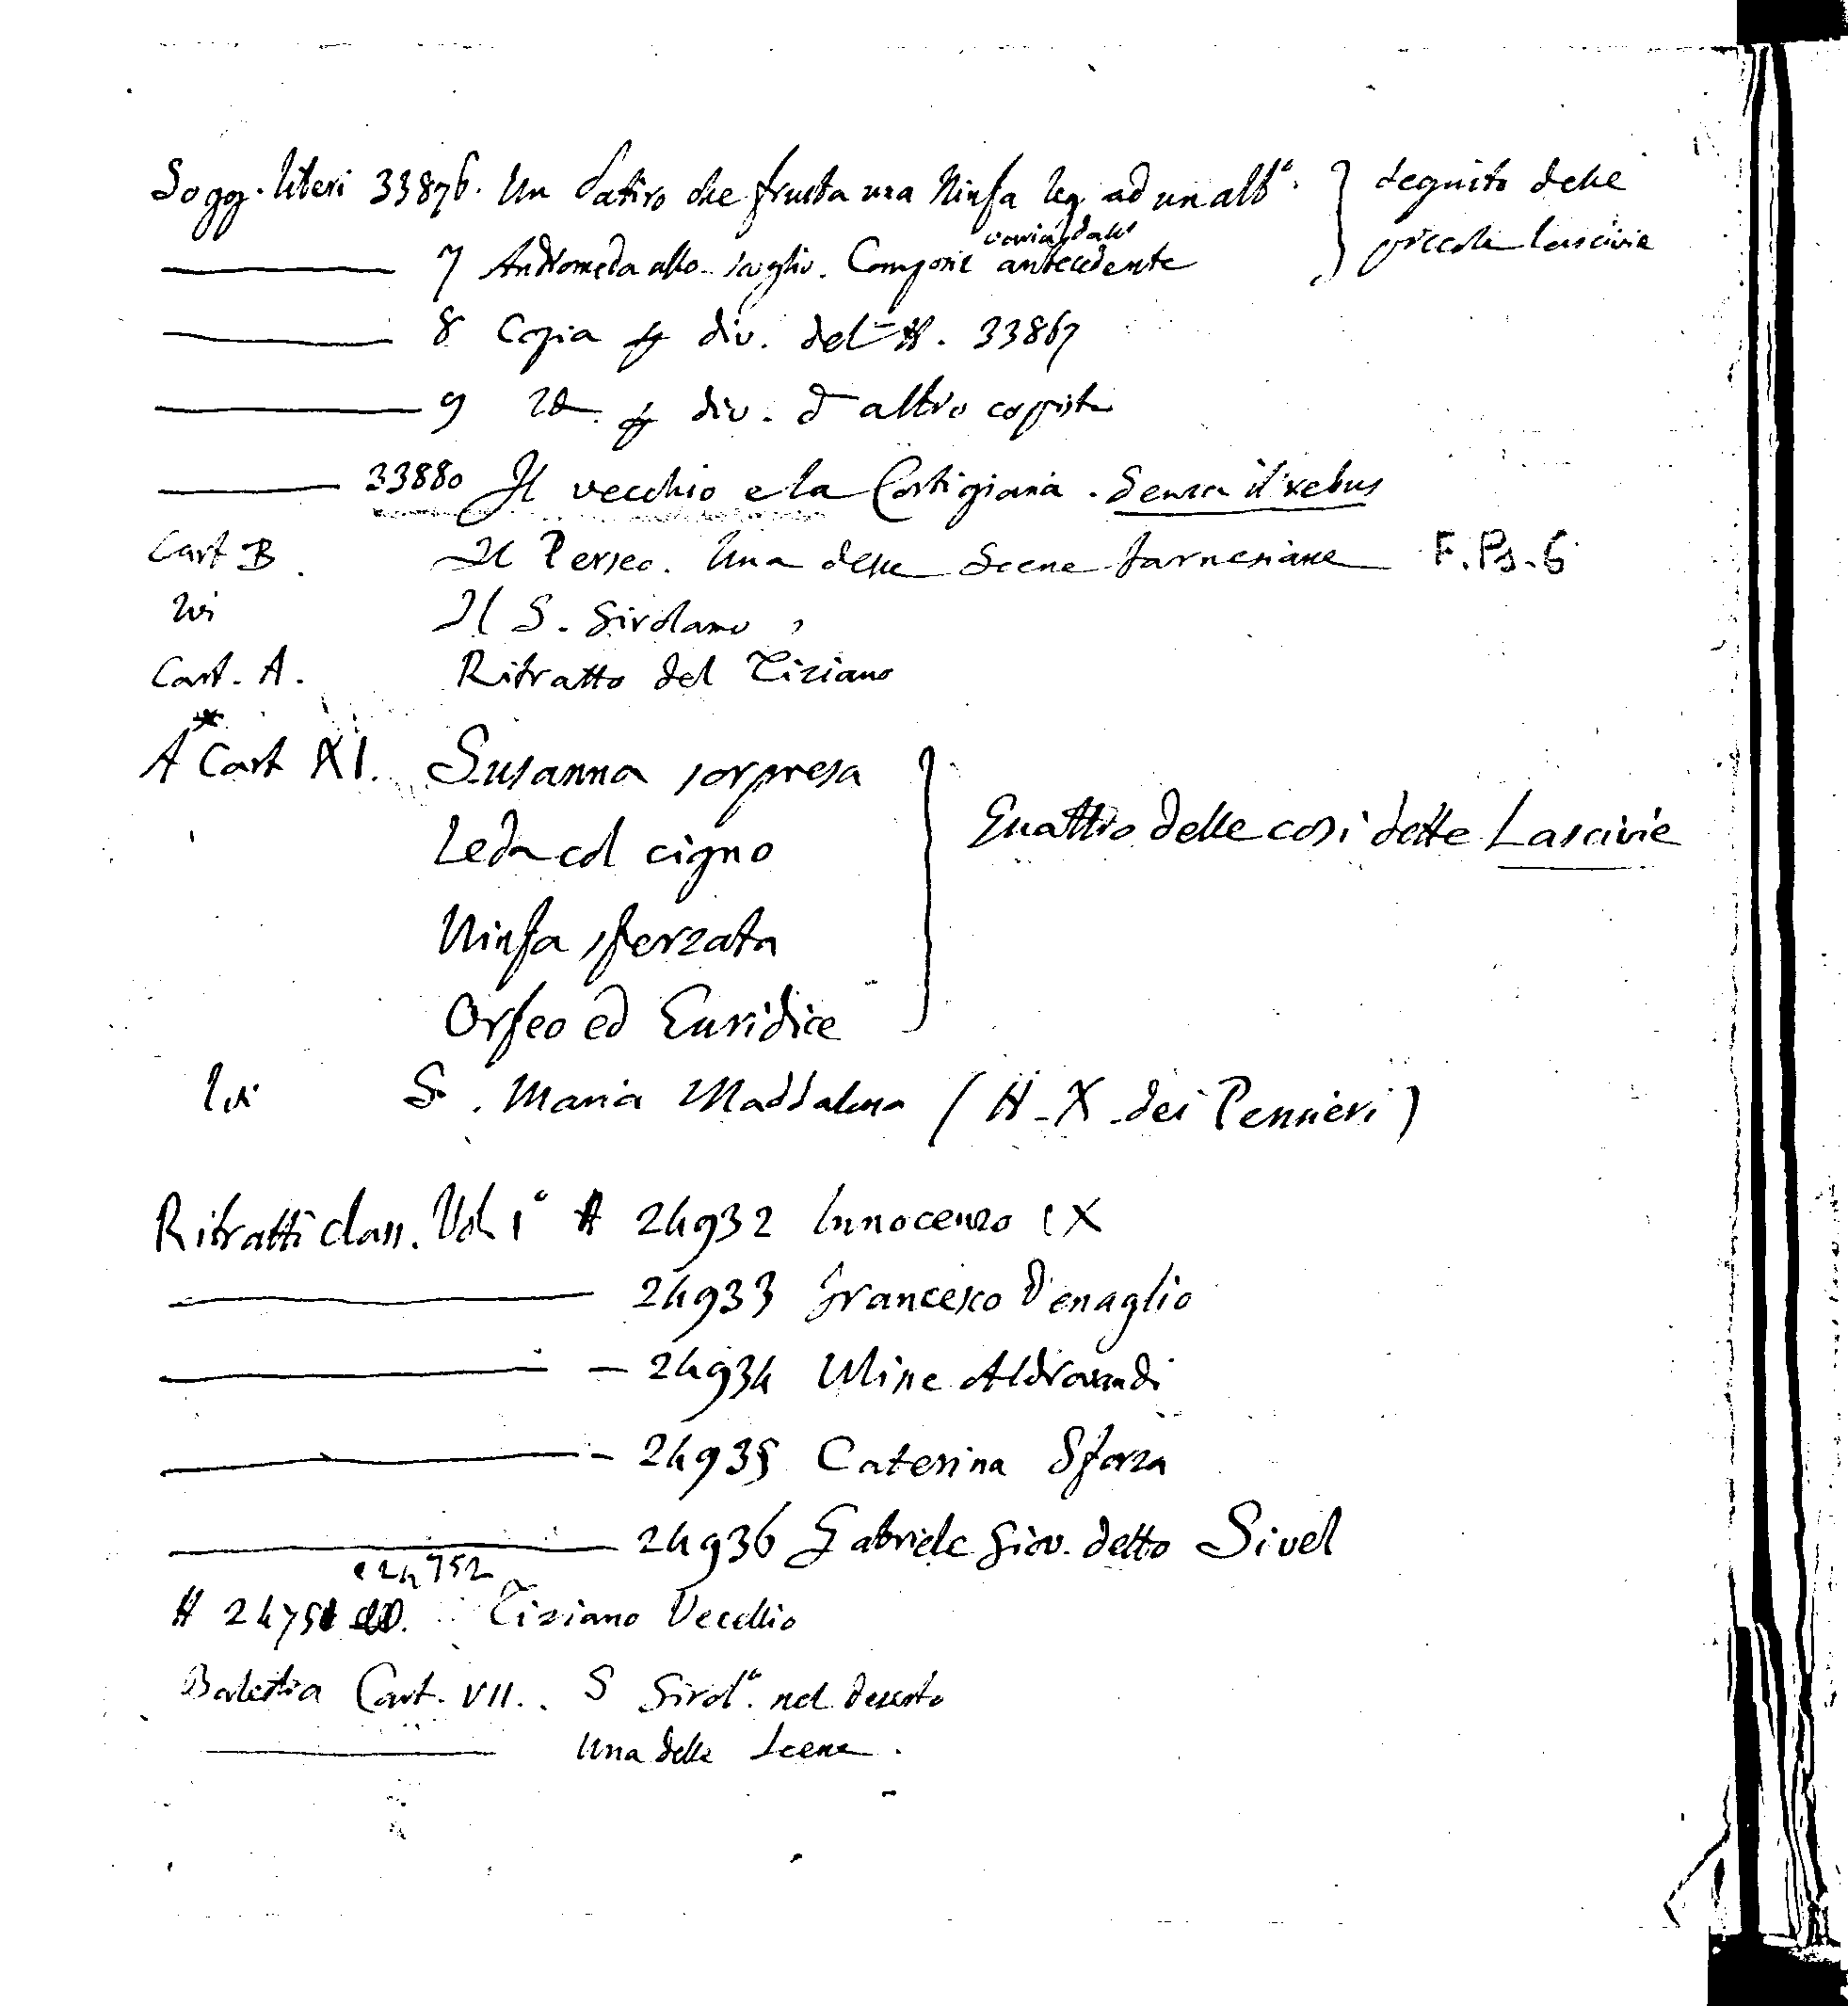 Sogg. liberi 33876. Un Satiro che frusta una Ninfa leg. ad un alb°. } Seguito delle piccole lascivie
7 Andromeda allo scoglio. Composiz variata dall' antecedente
8 Copia div. del N. 33867
9 Id. div. d altro copista
33880 Il vecchio e la Cortigiana. Senza il rebus
Cart B. Il Perseo. Una delle Scene Farnesiane F. Ps. 6
Ivi Il S. Girolamo
Cart. A. Ritratto del Tiziano
A* Cart XI. Susanna sorpresa
Leda col cigno
Ninfa sferzata
Orfeo ed Euridice
} Quattro delle cosi dette Lascivie
Ivi S. Maria Maddalena (N. X. dei Pensieri)
Ritratti class. Vol. 1° N 24932 Innocenzo IX
24933 Francesco Denaglio
24934 Ulisse Aldrovandi
24935 Caterina Sforza
24936 Gabriele Giov. detto Sivel
N 24751 e 24752 Tiziano Vecellio
Balestra Cart. VII. S Girol°. nel deserto
Una delle Scene.